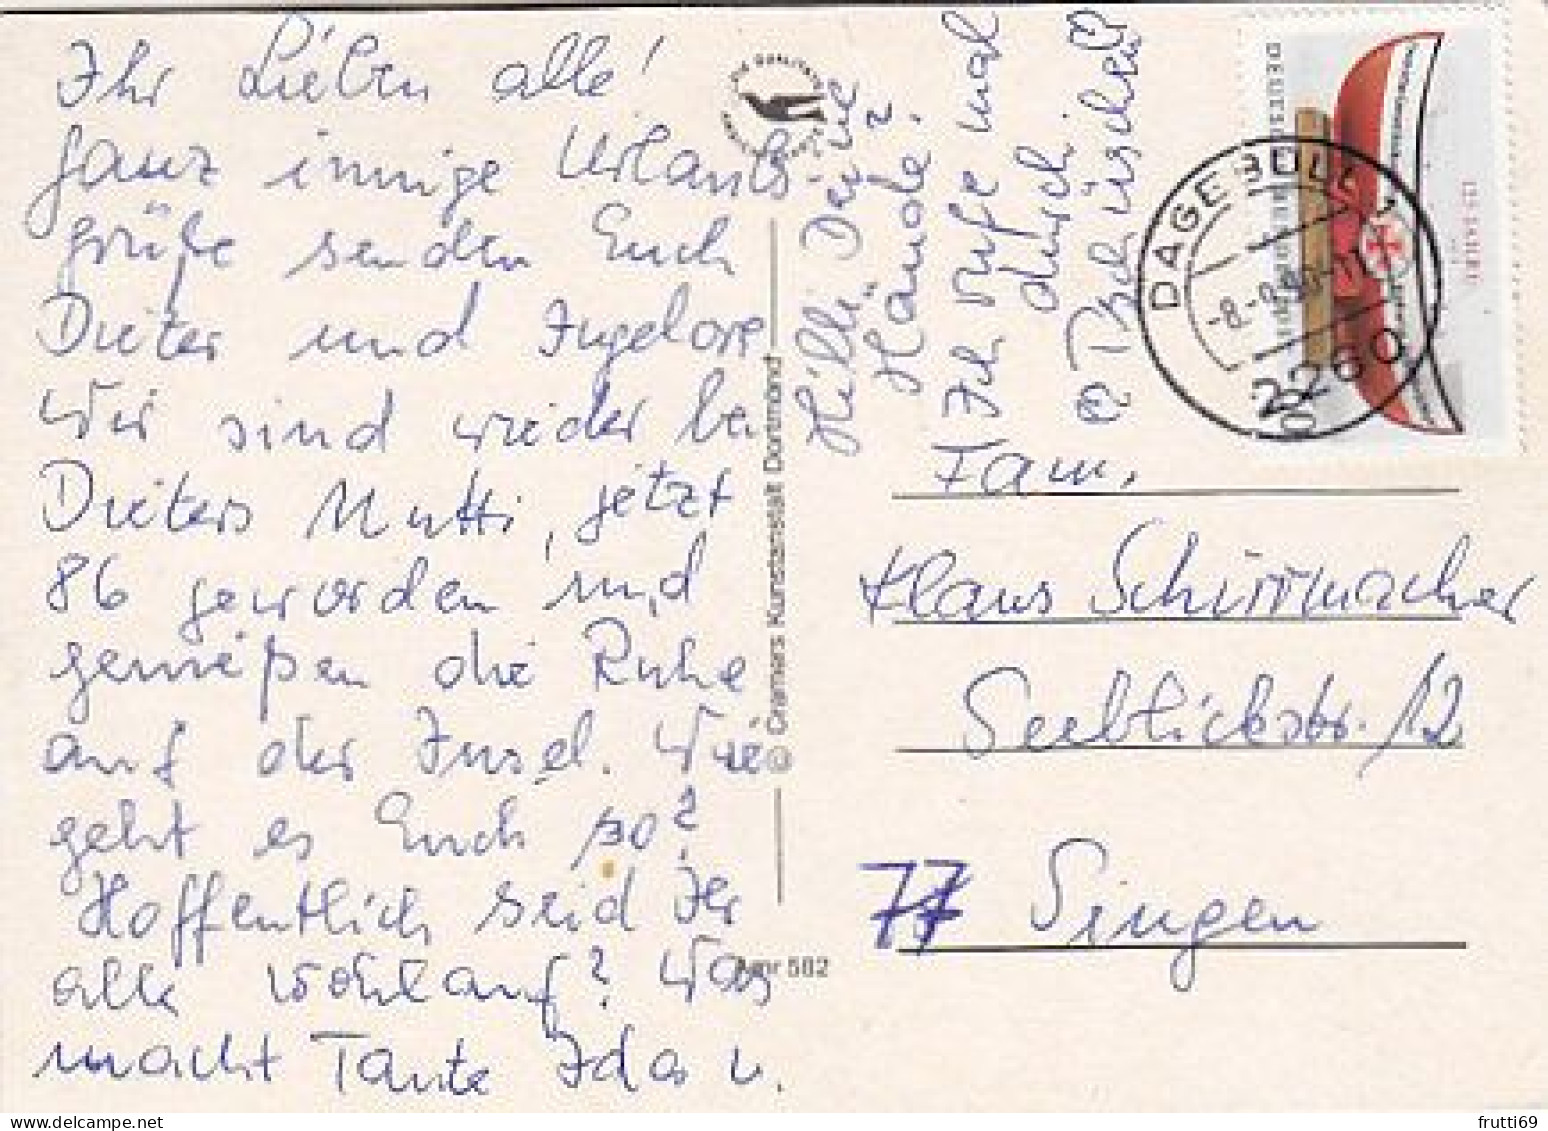 Ihr Lieben alle!
ganz innige Urlaubs-
grüße senden Euch
Dieter und Ingelore
Wir sind wieder bei
Dieters Mutti, jetzt
86 geworden und
genießen die Ruhe
auf der Insel. Wie
geht es Euch so?
Hoffentlich seid Ihr
alle wohlauf? Was
macht Tante Ida u.
Hilli? Deine
Hände?
(Ich rufe mal
durch.
Tschüschen
© Cramers Kunstanstalt Dortmund
582
DAGEBÜLL 1
2260
Fam.
Klaus Schirrmacher
Seeblickstr. 12
77 Singen
frutti69